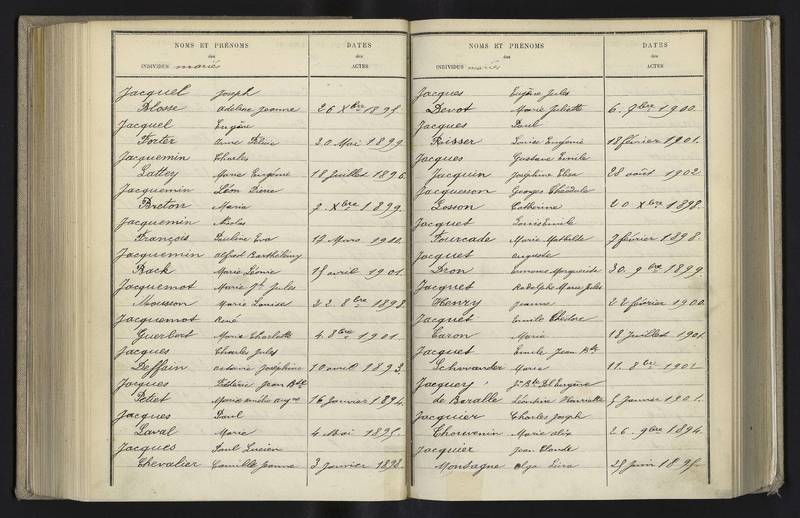 NOMS ET PRÉNOMS
des
INDIVIDUS mariés
DATES
des
ACTES
Jacquel Joseph
Blosse Adeline Jeanne 26 Xbre 1895.
Jacquel Eugène
Forter Anne 30 Mai 1899.
Jacquemin Charles
Lattey Marie Eugénie 18 Juillet 1896.
Jacquemin Léon Pierre
Breton Maria 7. Xbre 1899.
Jacquemin Nicolas
François Pauline Eva 17 Mars 1900.
Jacquemin Alfred Barthélemy
Back Marie Léonie 15 avril 1901.
Jacquemot Marie Jh Jules
Mousson Marie Louise 22 8bre 1898.
Jacquemot René
Guerbert Marie Charlotte 4. 8bre 1901.
Jacques Charles Jules
Deffain Octavie Joséphine 10 avril 1893.
Jacques Frédéric Jean Bte
Petiet Marie 16 Janvier 1894.
Jacques Paul
Laval Marie 4 Mai 1895.
Jacques Paul Lucien
Chevalier Camille Jeanne 3 Janvier 1898.
NOMS ET PRÉNOMS
des
INDIVIDUS mariés
DATES
des
ACTES
Jacques Eugène Jules
Devot Marie Juliette 6. 9bre 1900.
Jacques Paul
Risser Louise Eugénie 18 février 1901.
Jacques Gustave Emile
Jacquin Joséphine Elisa 28 août 1902
Jacqueson Georges Théodule
Losson Catherine 20 Xbre 1898.
Jacquet Louis Emile
Fourcade Marie Mathilde 7 février 1898.
Jacquet Auguste
Dron Marguerite 30. 9bre 1899.
Jacquet Rodolphe Marie Jules
Henry Jeanne 22 février 1900.
Jacquet Emile Théodore
Caron Maria 18 Juillet 1901.
Jacquet Emile Jean Bte
Schwander Marie 11. 8bre 1902
Jacquey Jn Bte Eugène
de Baralle Léontine Henriette 5 Janvier 1901.
Jacquier Charles Joseph
Thouvenin Marie Alix 26. 9bre 1894.
Jacquier Jean Claude
Montagne Olga 25 Juin 1895.